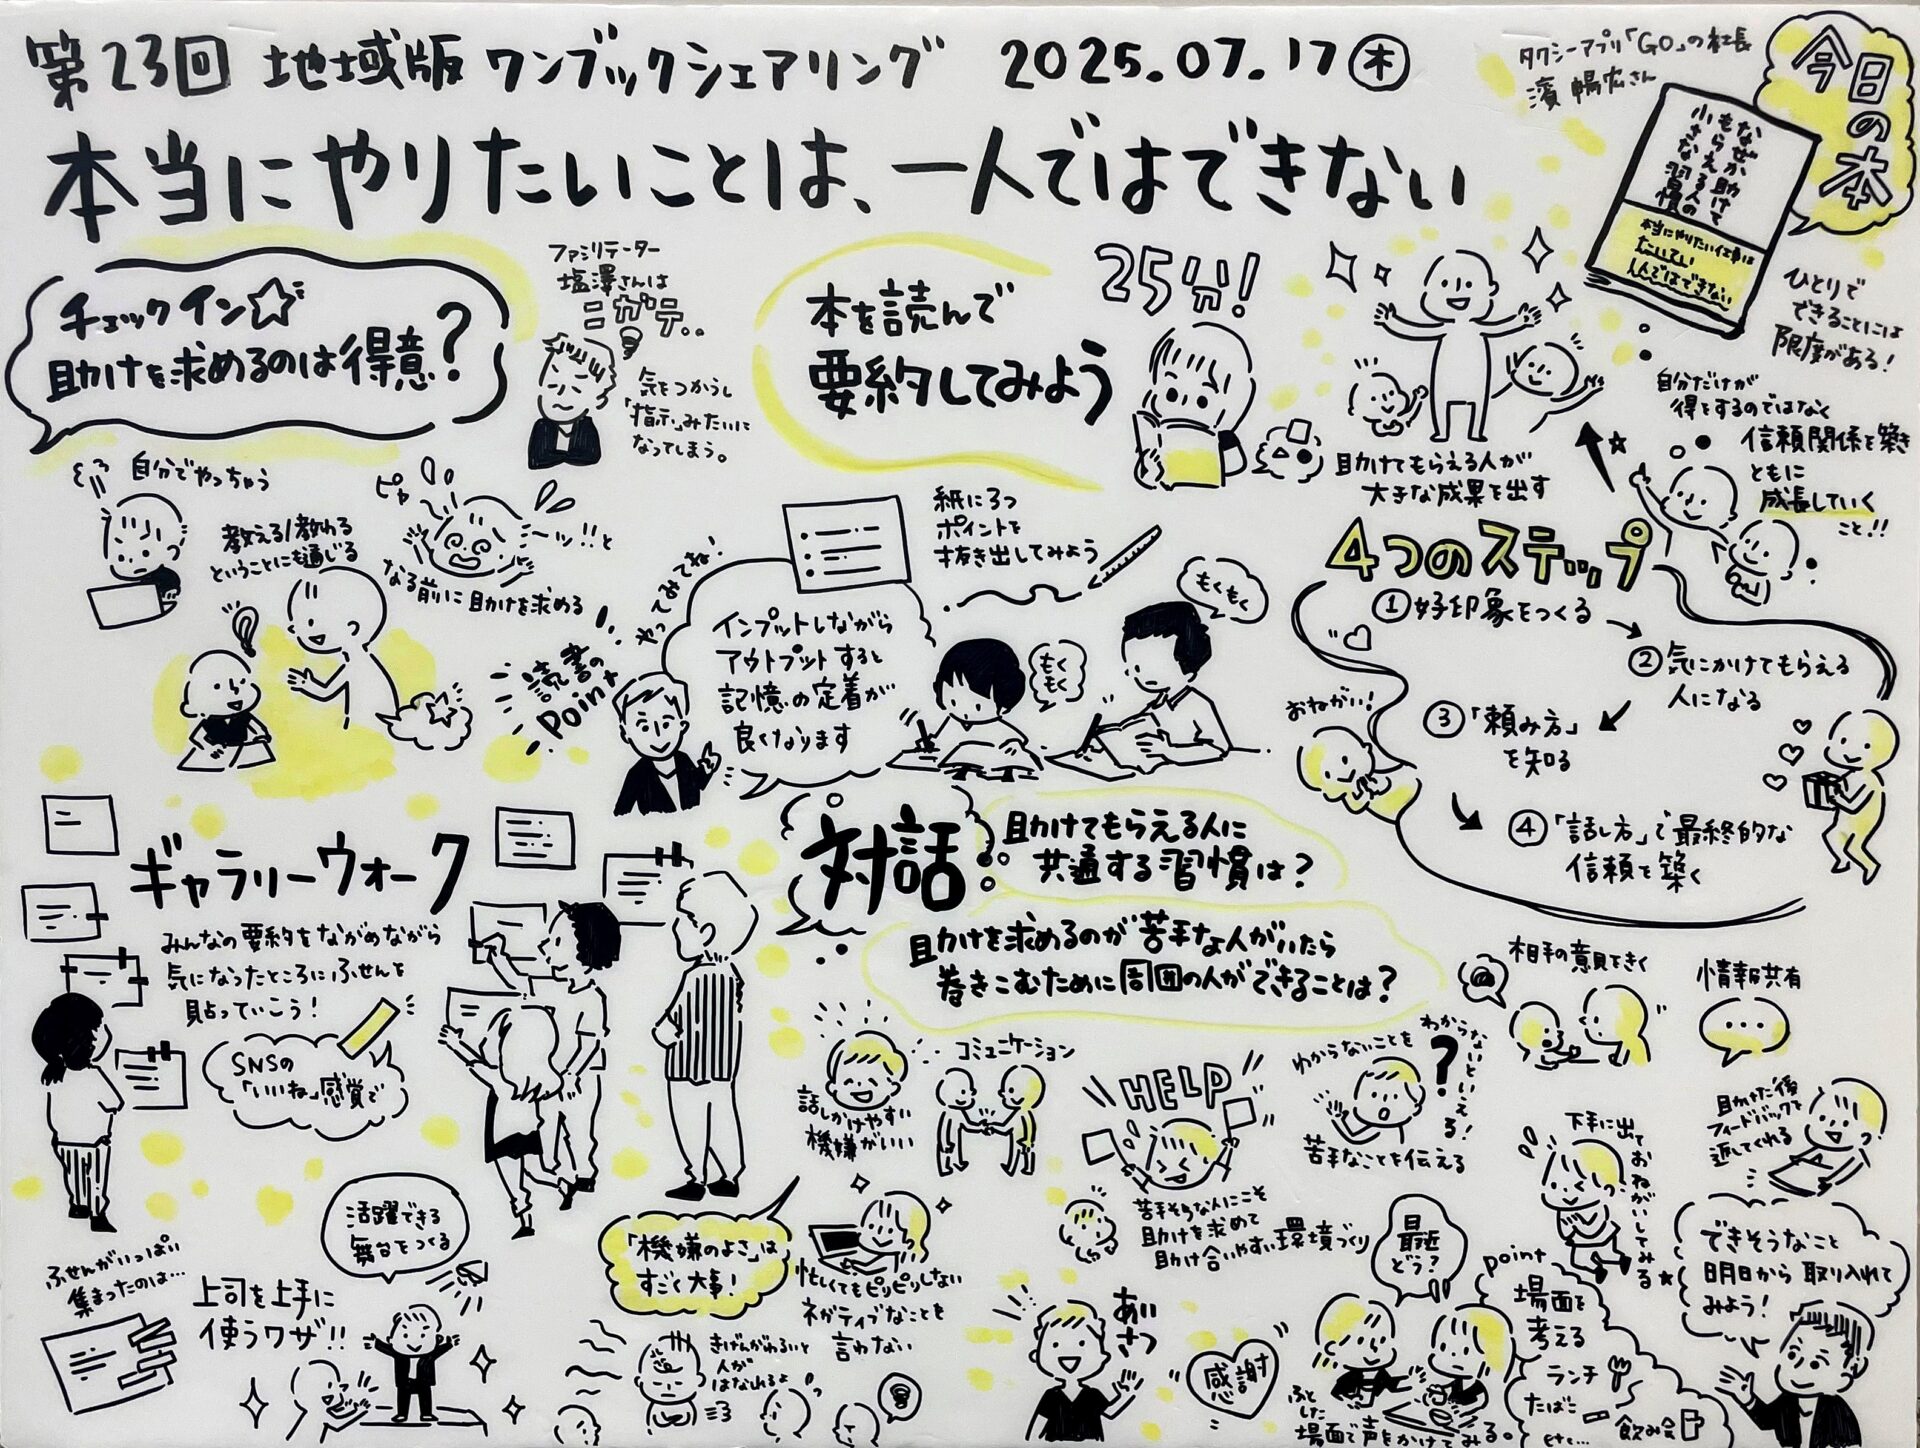 第23回 地域版 ワンブックシェアリング 2025.07.17㊍
本当にやりたいことは、一人ではできない
タクシーアプリ「GO」の社長
濱 暢宏さん
今日の本
なぜか助けて
もらえる人の
小さな習慣
本当にやりたい仕事は
たいてい
1人ではできない
ひとりで
できることには
限度がある!
自分だけが
得をするのではなく
信頼関係を築き
ともに
成長していく
こと!!
チェックイン☆
助けを求めるのは得意?
ファシリテーター
塩澤さんは
ニガテ..
気をつかうし
「指示」みたいに
なってしまう。
自分でやっちゃう
教える/教わる
ということにも通じる
ピャ
ーッ!!と
なる前に助けを求める
本を読んで
要約してみよう
25分!
助けてもらえる人が
大きな成果を出す
紙に3つ
ポイントを
抜き出してみよう
やってみてね!
読書の
Point
インプットしながら
アウトプットすると
記憶の定着が
良くなります
もくもく
もくもく
4つのステップ
①好印象をつくる
②気にかけてもらえる
人になる
③「頼み方」
を知る
④「話し方」で最終的な
信頼を築く
おねがい!
ギャラリーウォーク
みんなの要約をながめながら
気になったところにふせんを
貼っていこう!
SNSの
「いいね」感覚で
ふせんがいっぱい
集まったのは…
上司を上手に
使うワザ!!
活躍できる
舞台をつくる
対話
助けてもらえる人に
共通する習慣は?
助けを求めるのが苦手な人がいたら
巻きこむために周囲の人ができることは?
話しかけやすい
機嫌がいい
コミュニケーション
「機嫌のよさ」は
すごく大事!
忙しくてもピリピリしない
ネガティブなことを
言わない
きげんがわるいと
人が
はなれるよ
HELP
苦手そうな人にこそ
助けを求めて
助け合いやすい環境づくり
わからないことを
わからないといえる!
?
苦手なことを伝える
相手の意見をきく
情報共有
…
助けた後
フィードバックを
返してくれる
下手に出て
おねがいしてみる
あいさつ
感謝
最近
どう?
ふと
した
場面で声をかけてみる。
point
場面を
考える
ランチ
たばこ
飲み会
etc…
できそうなこと
明日から取り入れて
みよう!